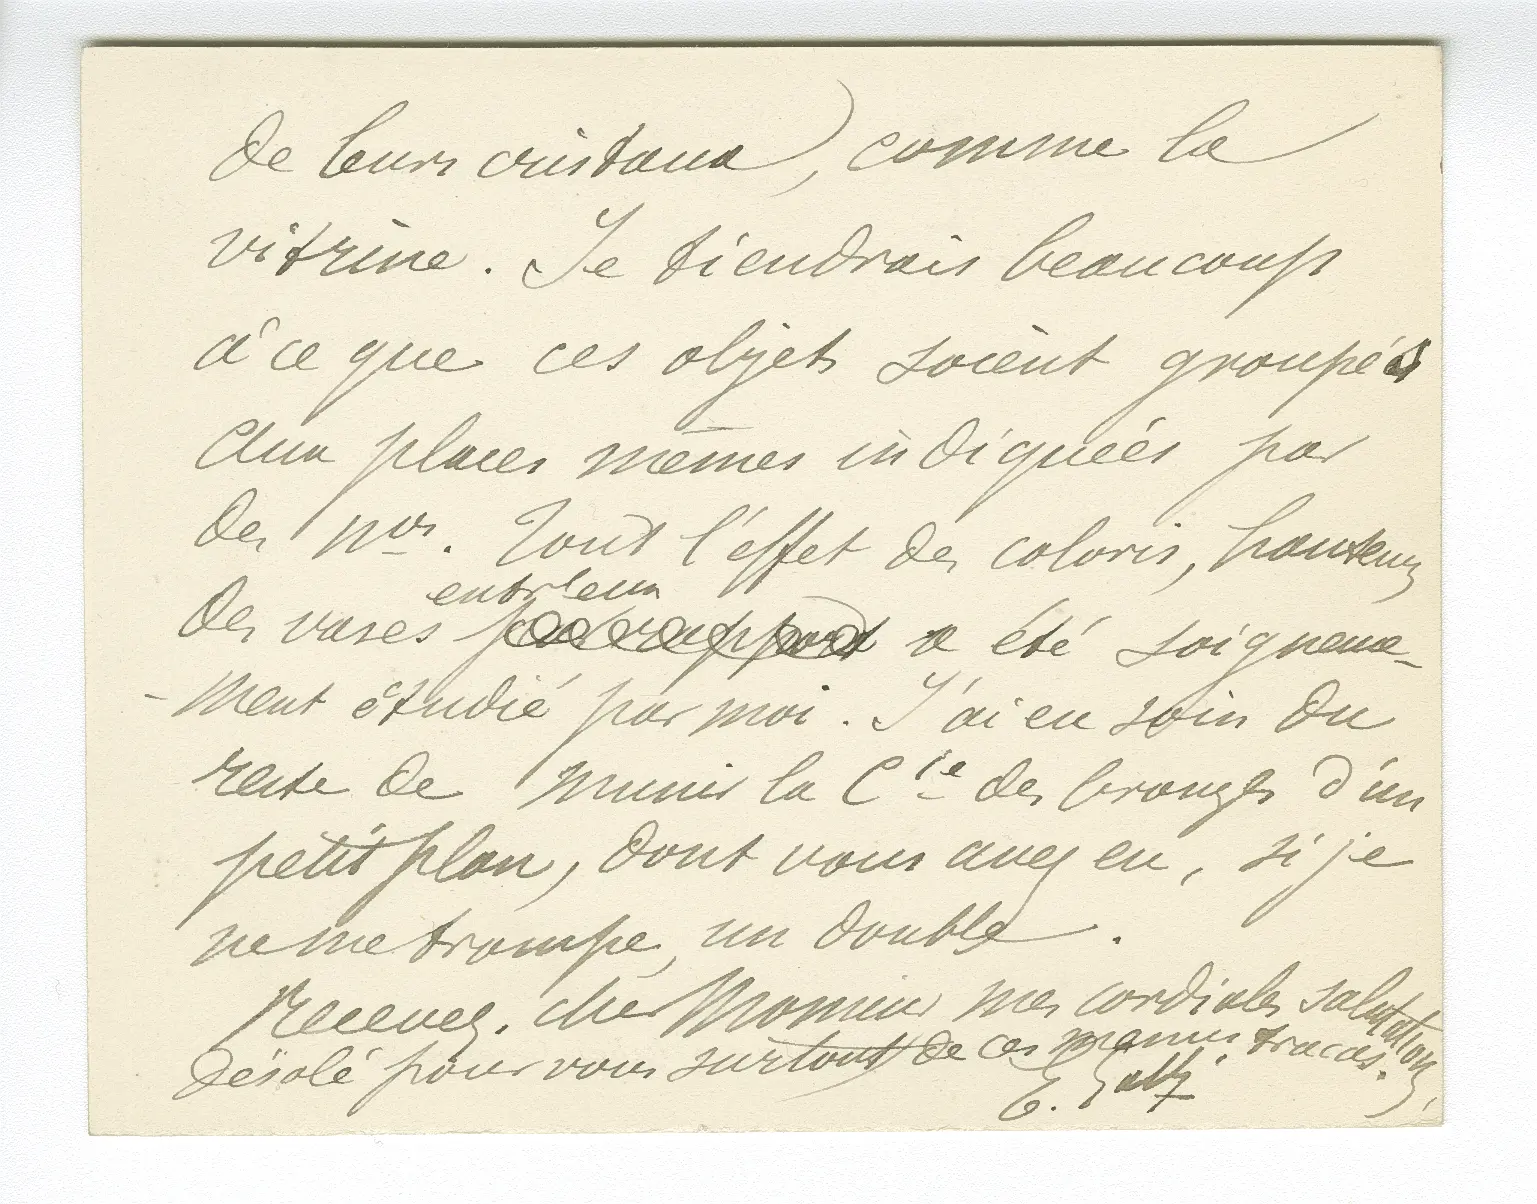 de leurs cristaux), comme la
vitrine. Je tiendrais beaucoup
à ce que ces objets soient groupés
aux places mêmes indiquées par
des nos. Tout l'effet des coloris, hauteurs
des vases entr'eux par rapport a été soigneuse-
-ment étudié par moi. J'ai eu soin du
reste de munir la Cie des bronzes d'un
petit plan, dont vous avez eu, si je
ne me trompe, un double.
Recevez, cher Monsieur mes cordiales salutations,
désolé pour vous surtout de ces menus tracas.
E. Gallé